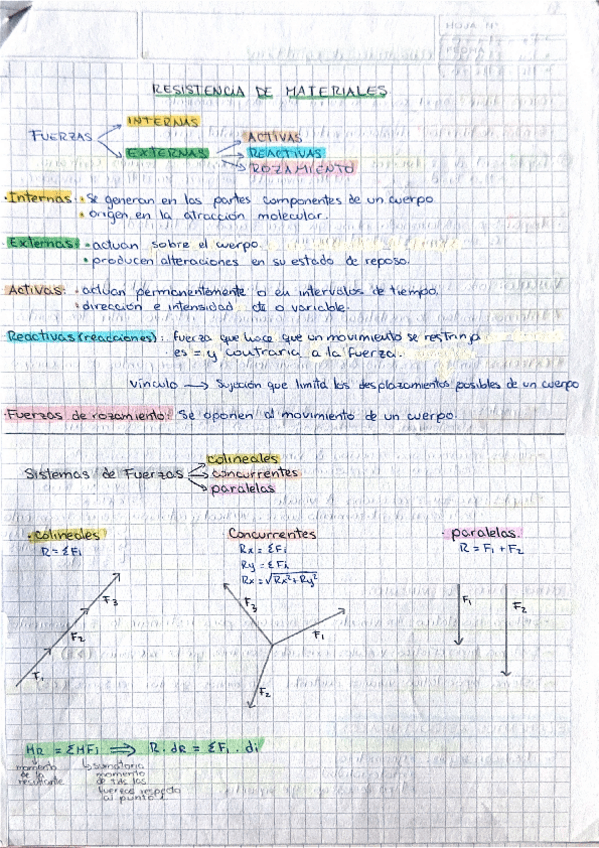 HOJA N°
FECHA
RESISTENCIA DE MATERIALES
FUERZAS
INTERNAS
EXTERNAS
ACTIVAS
REACTIVAS
ROZAMIENTO
·Internas: • Se generan en las partes componentes de un cuerpo
• origen en la atracción molecular.
Externas: • actuan sobre el cuerpo.
• producen alteraciones en su estado de reposo.
Activas: • actúan permanentemente o en intervalos de tiempo.
• dirección e intensidad cte o variable.
Reactivas (reacciones): fuerza que hace que un movimiento se restrinja
· es = y contraria a la fuerza.
Vinculo → Sujeción que limita los desplazamientos posibles de un cuerpo
·Fuerzas de rozamiento: Se oponen al movimiento de un cuerpo.
Sistemas de Fuerzas
colineales
concurrentes
paralelas
· colineales
R = ΣFi
F1
F2
F3
Concurrentes
Rx = ΣFi
Ry = ΣFi
Rx = √Rx²+Ry²
F3
F1
F2
· paralelas.
R = F1 + F2
F1
F2
MR = ΣMFi ⟹ R. dR = ΣFi . di
momento
de la
resultante
↳ sumatoria
momento
de tds las
fuerzas respecto
al punto